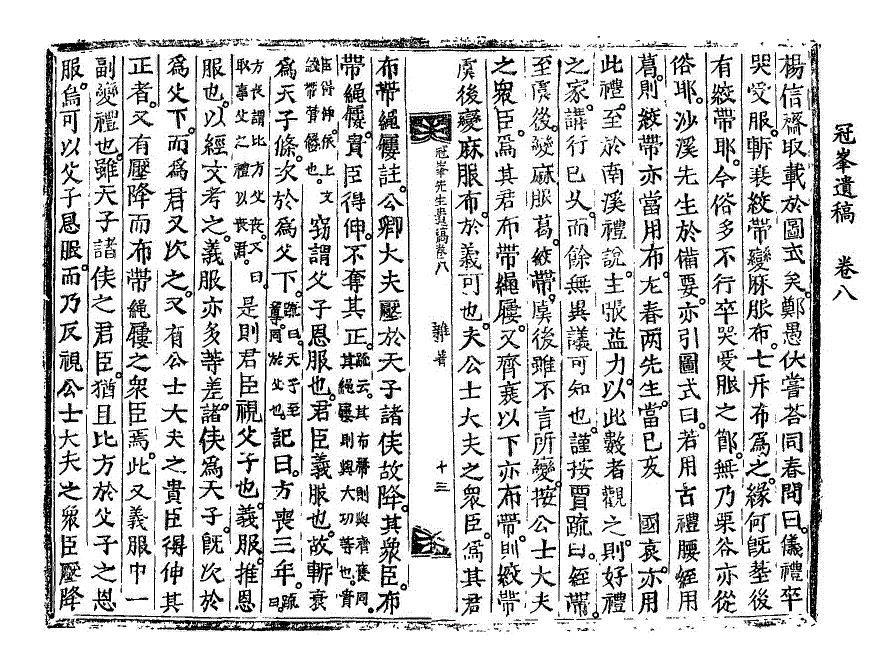 冠峯遺稿　卷八
楊信齋取載於圖式矣。鄭愚伏嘗荅同春問曰。儀禮卒
哭受服。斬衰絞帶變麻服布。七升布爲之。緣何旣葬後
有絞帶耶。今俗多不行卒哭受服之節。無乃栗谷亦從
俗耶。沙溪先生於備要。亦引圖式曰。若用古禮腰絰用
葛。則絞帶亦當用布。尤春两先生。當己亥　國哀。亦用
此禮。至於南溪禮說。主張益力。以此數者觀之。則好禮
之家。講行已久。而餘無異議可知也。謹按賈疏曰。絰帶。
至虞後。變麻服葛。絞帶。虞後雖不言所變。按公士大夫
之衆臣。爲其君布帶繩屨。又齊衰以下亦布帶。則絞帶
虞後變麻服布。於義可也。夫公士大夫之衆臣。爲其君
冠峯先生遺稿卷八　雜著　十三
布帶繩屨註。公卿大夫壓於天子諸侯故降。其衆臣。布
帶繩屨。貴臣得伸。不奪其正。疏云。其布帶則與齊衰同。其繩屨則與大功等也。貴臣得伸。依上文絞帶菅屨也。
竊謂父子恩服也。君臣義服也。故斬衰
爲天子條。次於爲父下。疏曰。天子至尊。同於父也。記曰。方喪三年。疏曰。
方喪謂比方父喪。又曰。取事父之禮以喪君。是則君臣視父子也。義服。推恩
服也。以經文考之。義服亦多等差。諸侯爲天子。旣次於
爲父下。而爲君又次之。又有公士大夫之貴臣得伸其
正者。又有壓降而布帶繩屨之衆臣焉。此又義服中一
副變禮也。雖天子諸侯之君臣。猶且比方於父子之恩
服。烏可以父子恩服。而乃反視公士大夫之衆臣壓降